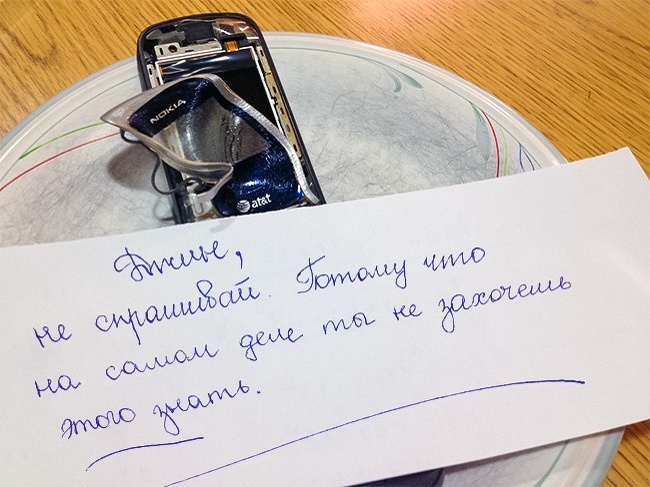 NOKIA
at&t
не спрашивай. Потому что
на самом деле ты не захочешь
этого знать.